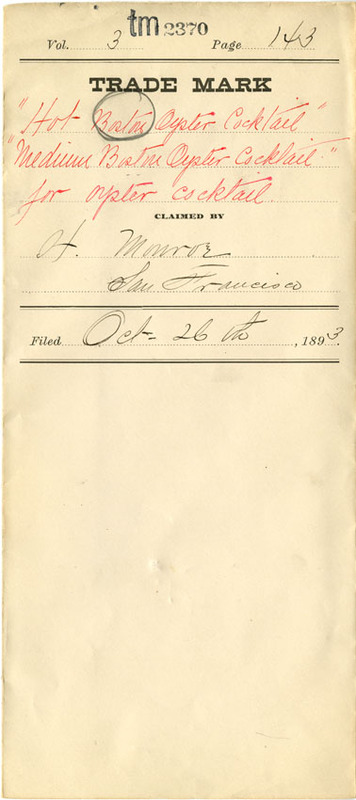 tm 2370
Vol. 3 Page 143
TRADE MARK
"Hot Boston Oyster Cocktail"
"Medium Boston Oyster Cocktail."
for oyster cocktail.
CLAIMED BY
H. Monroe
San Francisco
Filed Oct- 26th, 1893.